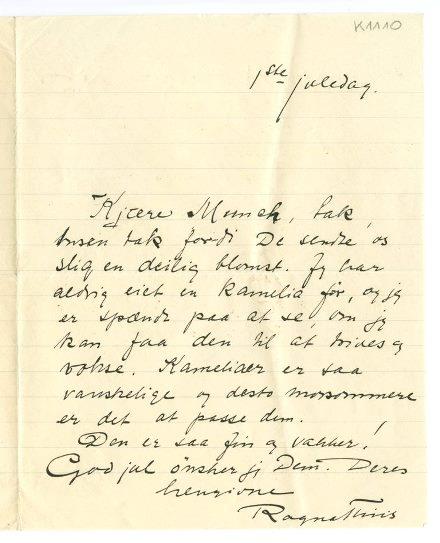 K1110
1ste juledag.
Kjære Munch, tak,
tusen tak fordi De sendte os
slig en deilig blomst. Jeg har
aldrig eiet en kamelia før, og jeg
er spændt paa at se, om jeg
kan faa den til at trives og
vokse. Kameliaer er saa
vanskelige og desto morsommere
er det at passe dem.
Den er saa fin og vakker!
God jul ønsker jeg Dem. Deres
hengivne
Ragna Thiis